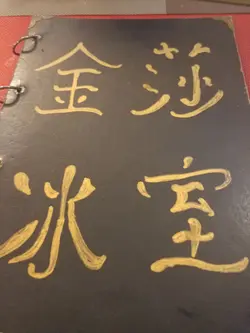 金莎
冰室